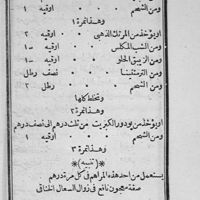 ومن الشحم اوقيه ١
وهذا نمرة ١
او يؤخذ من المرتك الذهبى اوقيه ٢
ومن الشب المكلس اوقيه ١
ومن الزيبق الحلو اوقيه ١
ومن الترمنتينا نصف رطل
ومن الشحم رطل ٢
وتخلط كلها
وهذا نمرة ٢
او يؤخذ من يودور الكبريت من ثلث درهم الى نصف درهم
ومن الشحم اوقيه ١
وهذا نمرة ٣
(تنبيه)
يستعمل من احد هذه المراهم فى كل مرة درهم
صفة معجون نافع فى زوال السعال الخناقى